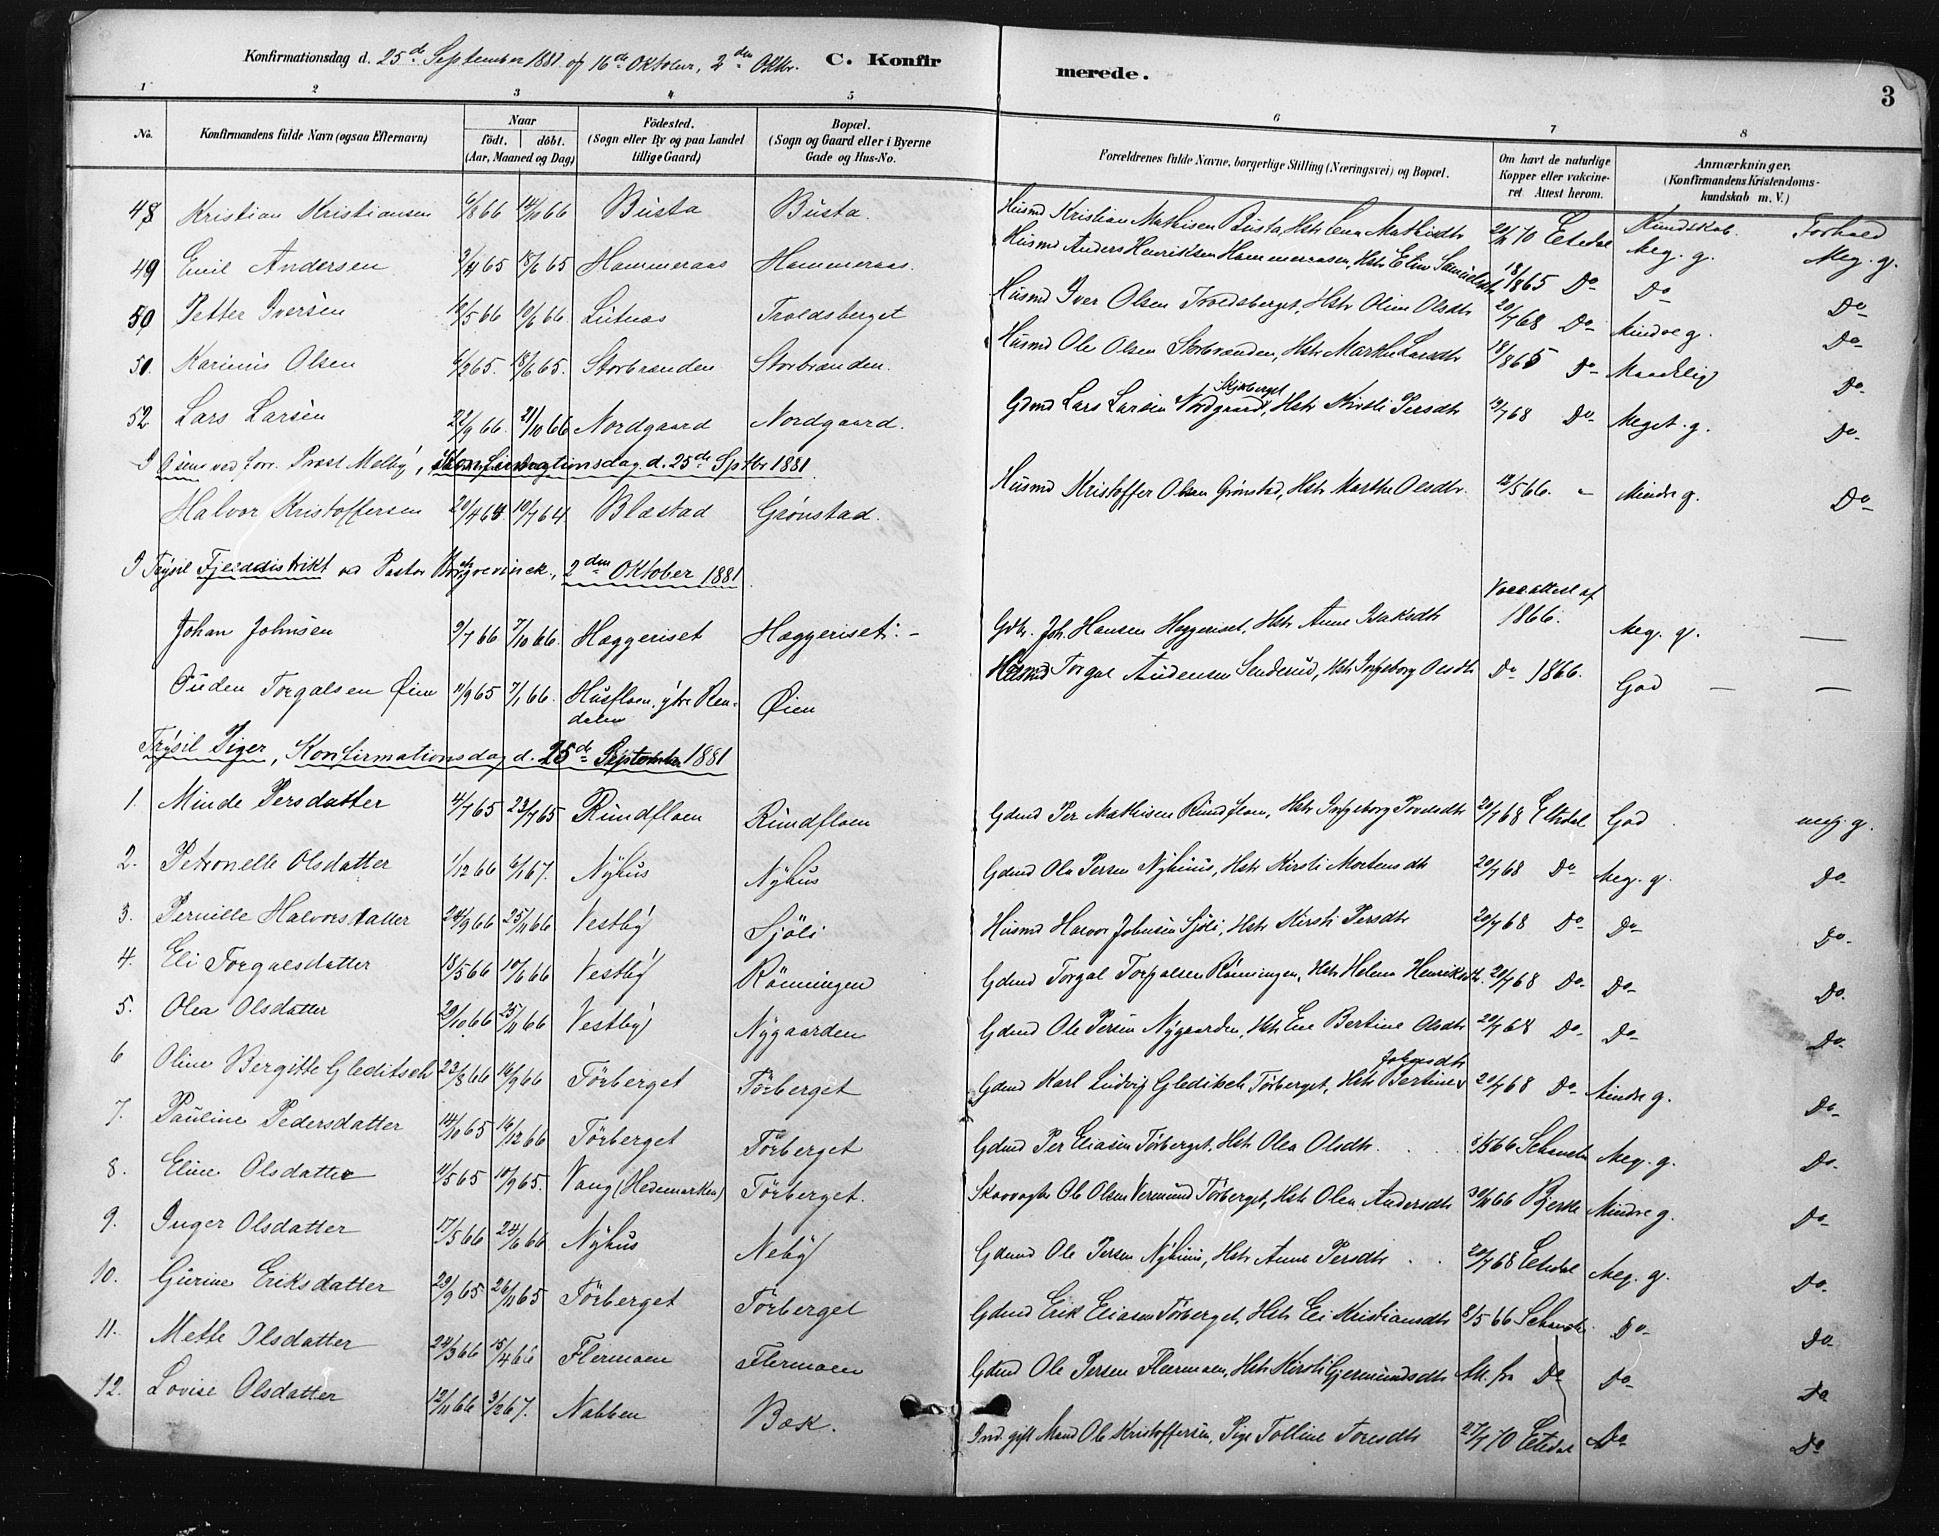 Konfirmationsdag d. 25de September 1881 og 16de Oktober, 2den Oktbr. C. Konfirmerede.
3
1 2 3 4 5 6 7 8
No. Konfirmandens fulde Navn (ogsaa Efternavn) Naar født. døbt. (Aar, Maaned og Dag) Fødested. (Sogn eller By og paa Landet tillige Gaard) Bopæl. (Sogn og Gaard eller i Byerne Gade og Hus-No. Forældrenes fulde Navne, borgerlige Stilling (Næringsvei) og Bopæl. Om havt de naturlige Kopper eller vakcineret. Attest herom. Anmærkninger. (Konfirmandens Kristendomskundskab m. V.)
Kundskab. Forhold
48 Kristian Kristiansen 6/8 66 14/10 66 Busta Busta. Husmd Kristian Mathisen Busta, Hstr Lena Mathisdtr 70 Elvdal Meg. g. Meg. g.
49 Emil Andersen 65 18/6 65 Hammeraas Hammeraas. Husmd Anders Henriksen Hammeraasen, Hstr Eline Samuelsdtr 18/8 65 Do Do Do
50 Petter Iversen 10/5 66 10/6 66 Lutnæs Troldsberget Husmd Iver Olsen Troldsberget, Hstr Olina Olsdtr 20/7 68 Do Mindre g. Do
51. Karinus Olsen 6/2 65. 18/6 65. Storbrænden Storbrænden. Husmd Ole Olsen Storbrænden, Hstr Marthe Larsdtr 18/8 65 Do Maadelig Do
52 Lars Larsen 22/9 66. 21/10 66 Nordgaard Nordgaard. Gdmd Lars Larsen Nordgaard, Skjærberget Hstr Kirsti Persdtr 19/7 68 Do Meget g. Do
I Osen ved forr. Provst Melby, Konfirmationsdag d. 25de Sptbr 1881.
Halvor Kristoffersen 20/4 64. 10/7 64 Blæstad Grønstad. Husmd Kristoffer Olsen Grønstad, Hstr Marthe Olsdtr. 12/5 66. Mindre g. Do
I Trysil Fjelddistrikt ved Pastor , 2den Oktober 1881.
Johan Johnsen 9/7 66 7/10 66. Hæggeriset Hæggeriset. Gdbr. Joh. Hansen Hæggeriset, Hstr Anne Isaksdtr Vaccattest af 1866. Meg. g. —
Ouden Torgalsen Øien 11/9 65 7/1 66. Husfloen, ytre Rendalen Øien Husmd Torgal Audensen Senderud, Hstr Ingeborg Olsdtr Do 1866. God — —
Trysil Piger, Konfirmationsdag d. 25de September 1881
1. Minde Persdatter 4/7 65 23/7 65 Rundfloen Rundfloen Gdmd Per Mathisen Rundfloen, Hstr Ingeborg 20/7 68 Elvdal God meg. g.
2. Petronelle Olsdatter 1/12 66 6/1 67. Nyhus Nyhus Gdmd Ole Persen Nyhuus, Hstr Kirsti Mortensdtr 20/7 68 Do Meg. g. Do
3. Pernille Halvorsdatter 24/9 66 25/11 66 Vestby Sjöli Husmd Halvor Johnsen Sjöli, Hstr Kirsti Persdtr 20/7 68 Do Do Do
4. Eli Torgalsdatter 18/5 66 10/6 66 Vestby Rönningen Gdmd Torgal Torgalsen Rönningen, Hstr Helene Henriksdtr. 20/7 68 Do Do Do
5. Olea Olsdatter 20/10 66 25/11 66 Vestby Nygaarden Gdmd Ole Persen Nygaarden, Hstr Ene Bertine Olsdtr 20/7 68 Do Do Do
6 Oline Bergitte Gleditsch 23/8 66 16/9 66 Törberget Törberget Gdmd Karl Ludvig Gleditsch, Törberget, Hstr Bertine Johnsdtr 20/7 68 Do Mindre g. Do
7. Pauline Pedersdatter 14/10 65 16/12 66 Törberget Törberget Gdmd Per Eliasen Törberget, Hstr Olea Olsdtr. 8/5 66 Schanche Meg. g. Do
8. Eline Olsdatter 11/5 65 10/9 65. Vang (Hedemarken) Törberget. Skovvogter Ole Olsen Vermund Törberget, Hstr Olea Andersdtr 30/11 66 Bjerke Mindre g. Do
9. Inger Olsdatter 17/5 66 24/6 66 Nyhus Neby Gdmd Ole Persen Nyhuus, Hstr Anne Persdtr 20/7 68 Elvdal Meg. g. Do
10. Gurine Eriksdatter 29/9 65 26/11 65 Törberget Törberget Gdmd Erik Eliasen Törberget, Hstr Eli Kristiansdtr 8/5 66 Schanche Do Do
11. Mette Olsdatter 24/3 66 15/4 66 Flermoen Flermoen Gdmd Ole Persen Flærmoen, Hstr Kirsti Gjermundsdtr Att. fra Do Do Do
12. Lovise Olsdatter 12/11 66 3/2 67. Nabben Bæk. Ind. gift Mand Ole Kristoffersen, Pige Tolline Toresdtr 27/7 70 Elvdal Do Do